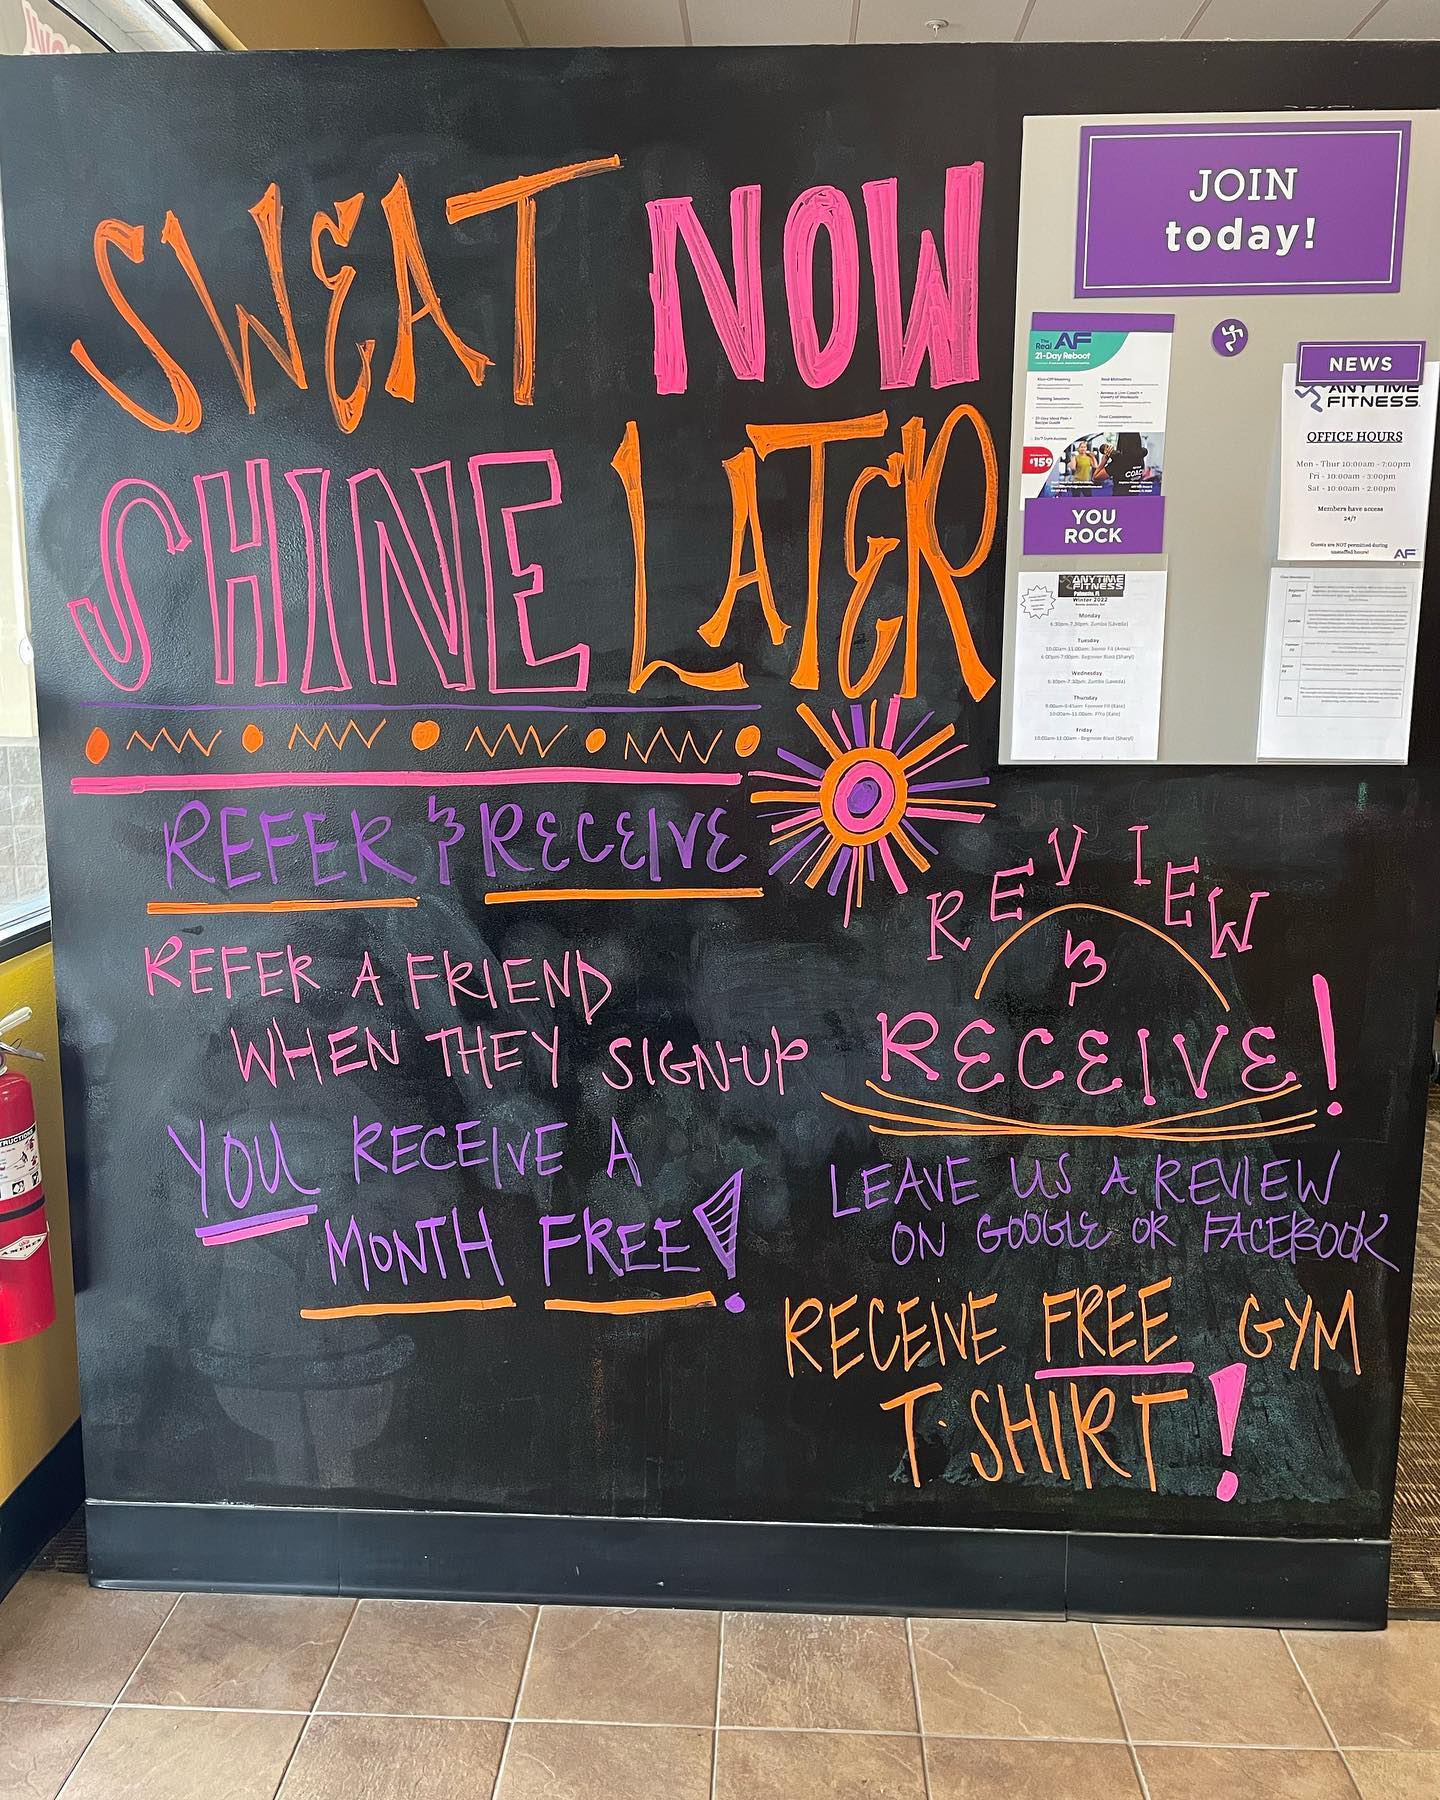 SWEAT NOW
SHINE LATER
REFER & RECEIVE
REFER A FRIEND
WHEN THEY SIGN-UP
YOU RECEIVE A
MONTH FREE!
REVIEW
&
RECEIVE!
LEAVE US A REVIEW
ON GOOGLE OR FACEBOOK
RECEIVE FREE GYM
T-SHIRT!
JOIN
today!
The Real AF
21-Day Reboot
Kick-Off Meeting
Training Sessions
21-Day Meal Plan +
Recipe Guide
$159
YOU
ROCK
ANYTIME
FITNESS
Palmetto, FL
Winter 2022
Monday
6:30pm-7:30pm: Zumba (Laveda)
Tuesday
10:00am-11:00am: Senior Fit (Anna)
6:00pm-7:00pm: Beginner Blast (Sharyl)
Wednesday
6:30pm-7:30pm: Zumba (Laveda)
Thursday
9:00am-9:45am: Forever Fit (Kate)
10:00am-11:00am: PiYo (Kate)
Friday
10:00am-11:00am - Beginner Blast (Sharyl)
NEWS
ANYTIME
FITNESS
OFFICE HOURS
Mon - Thur 10:00am - 7:00pm
Fri - 10:00am - 3:00pm
Sat - 10:00am - 2:00pm
Members have access
24/7
Guests are NOT permitted during
unstaffed hours!
AF
Zumba